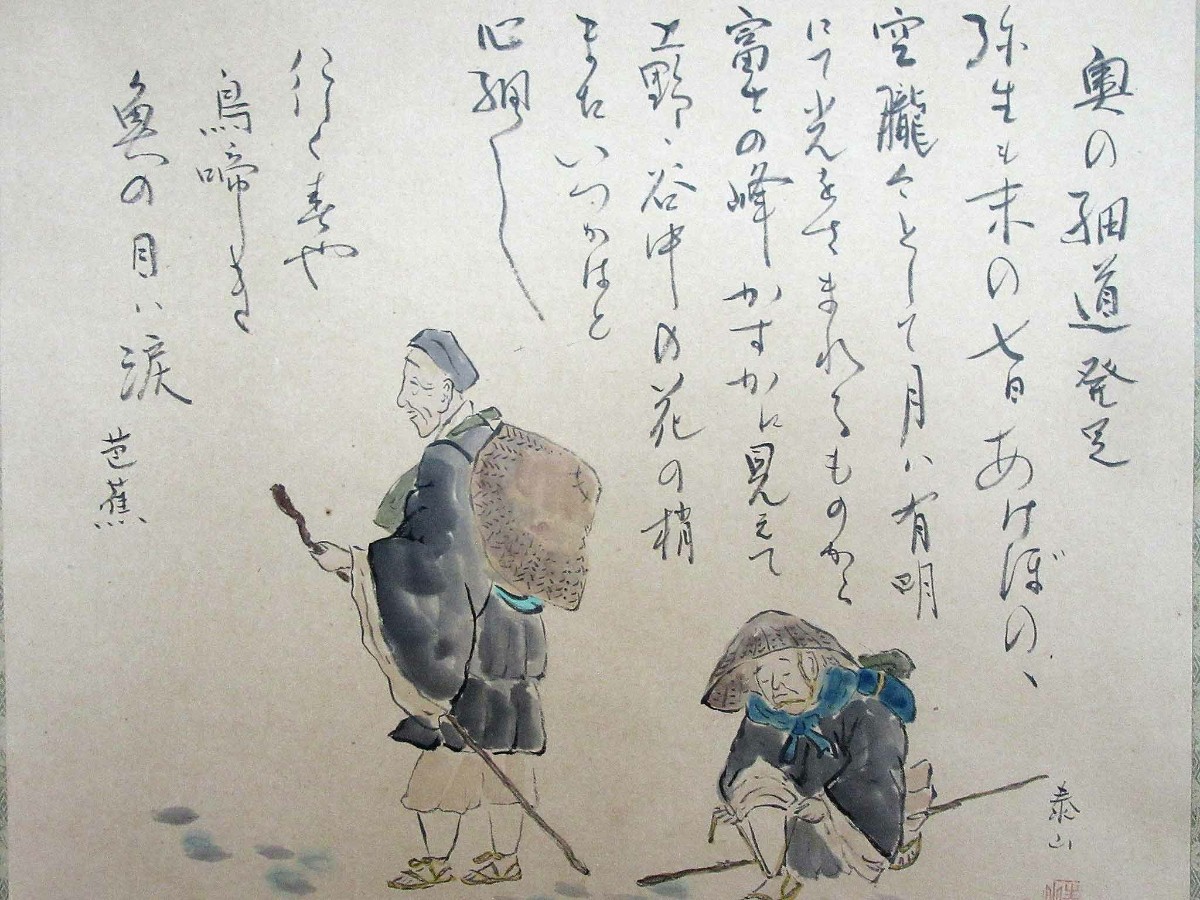 奥の細道発足
弥生も末の七日あけぼのゝ
空朧々として月ハ有明
にて光をさまれるものから
富士の峰かすかに見えて
上野、谷中の花の梢
またいつかはと
心細し
行く春や
鳥啼き
魚の目ハ涙
芭蕉
泰山